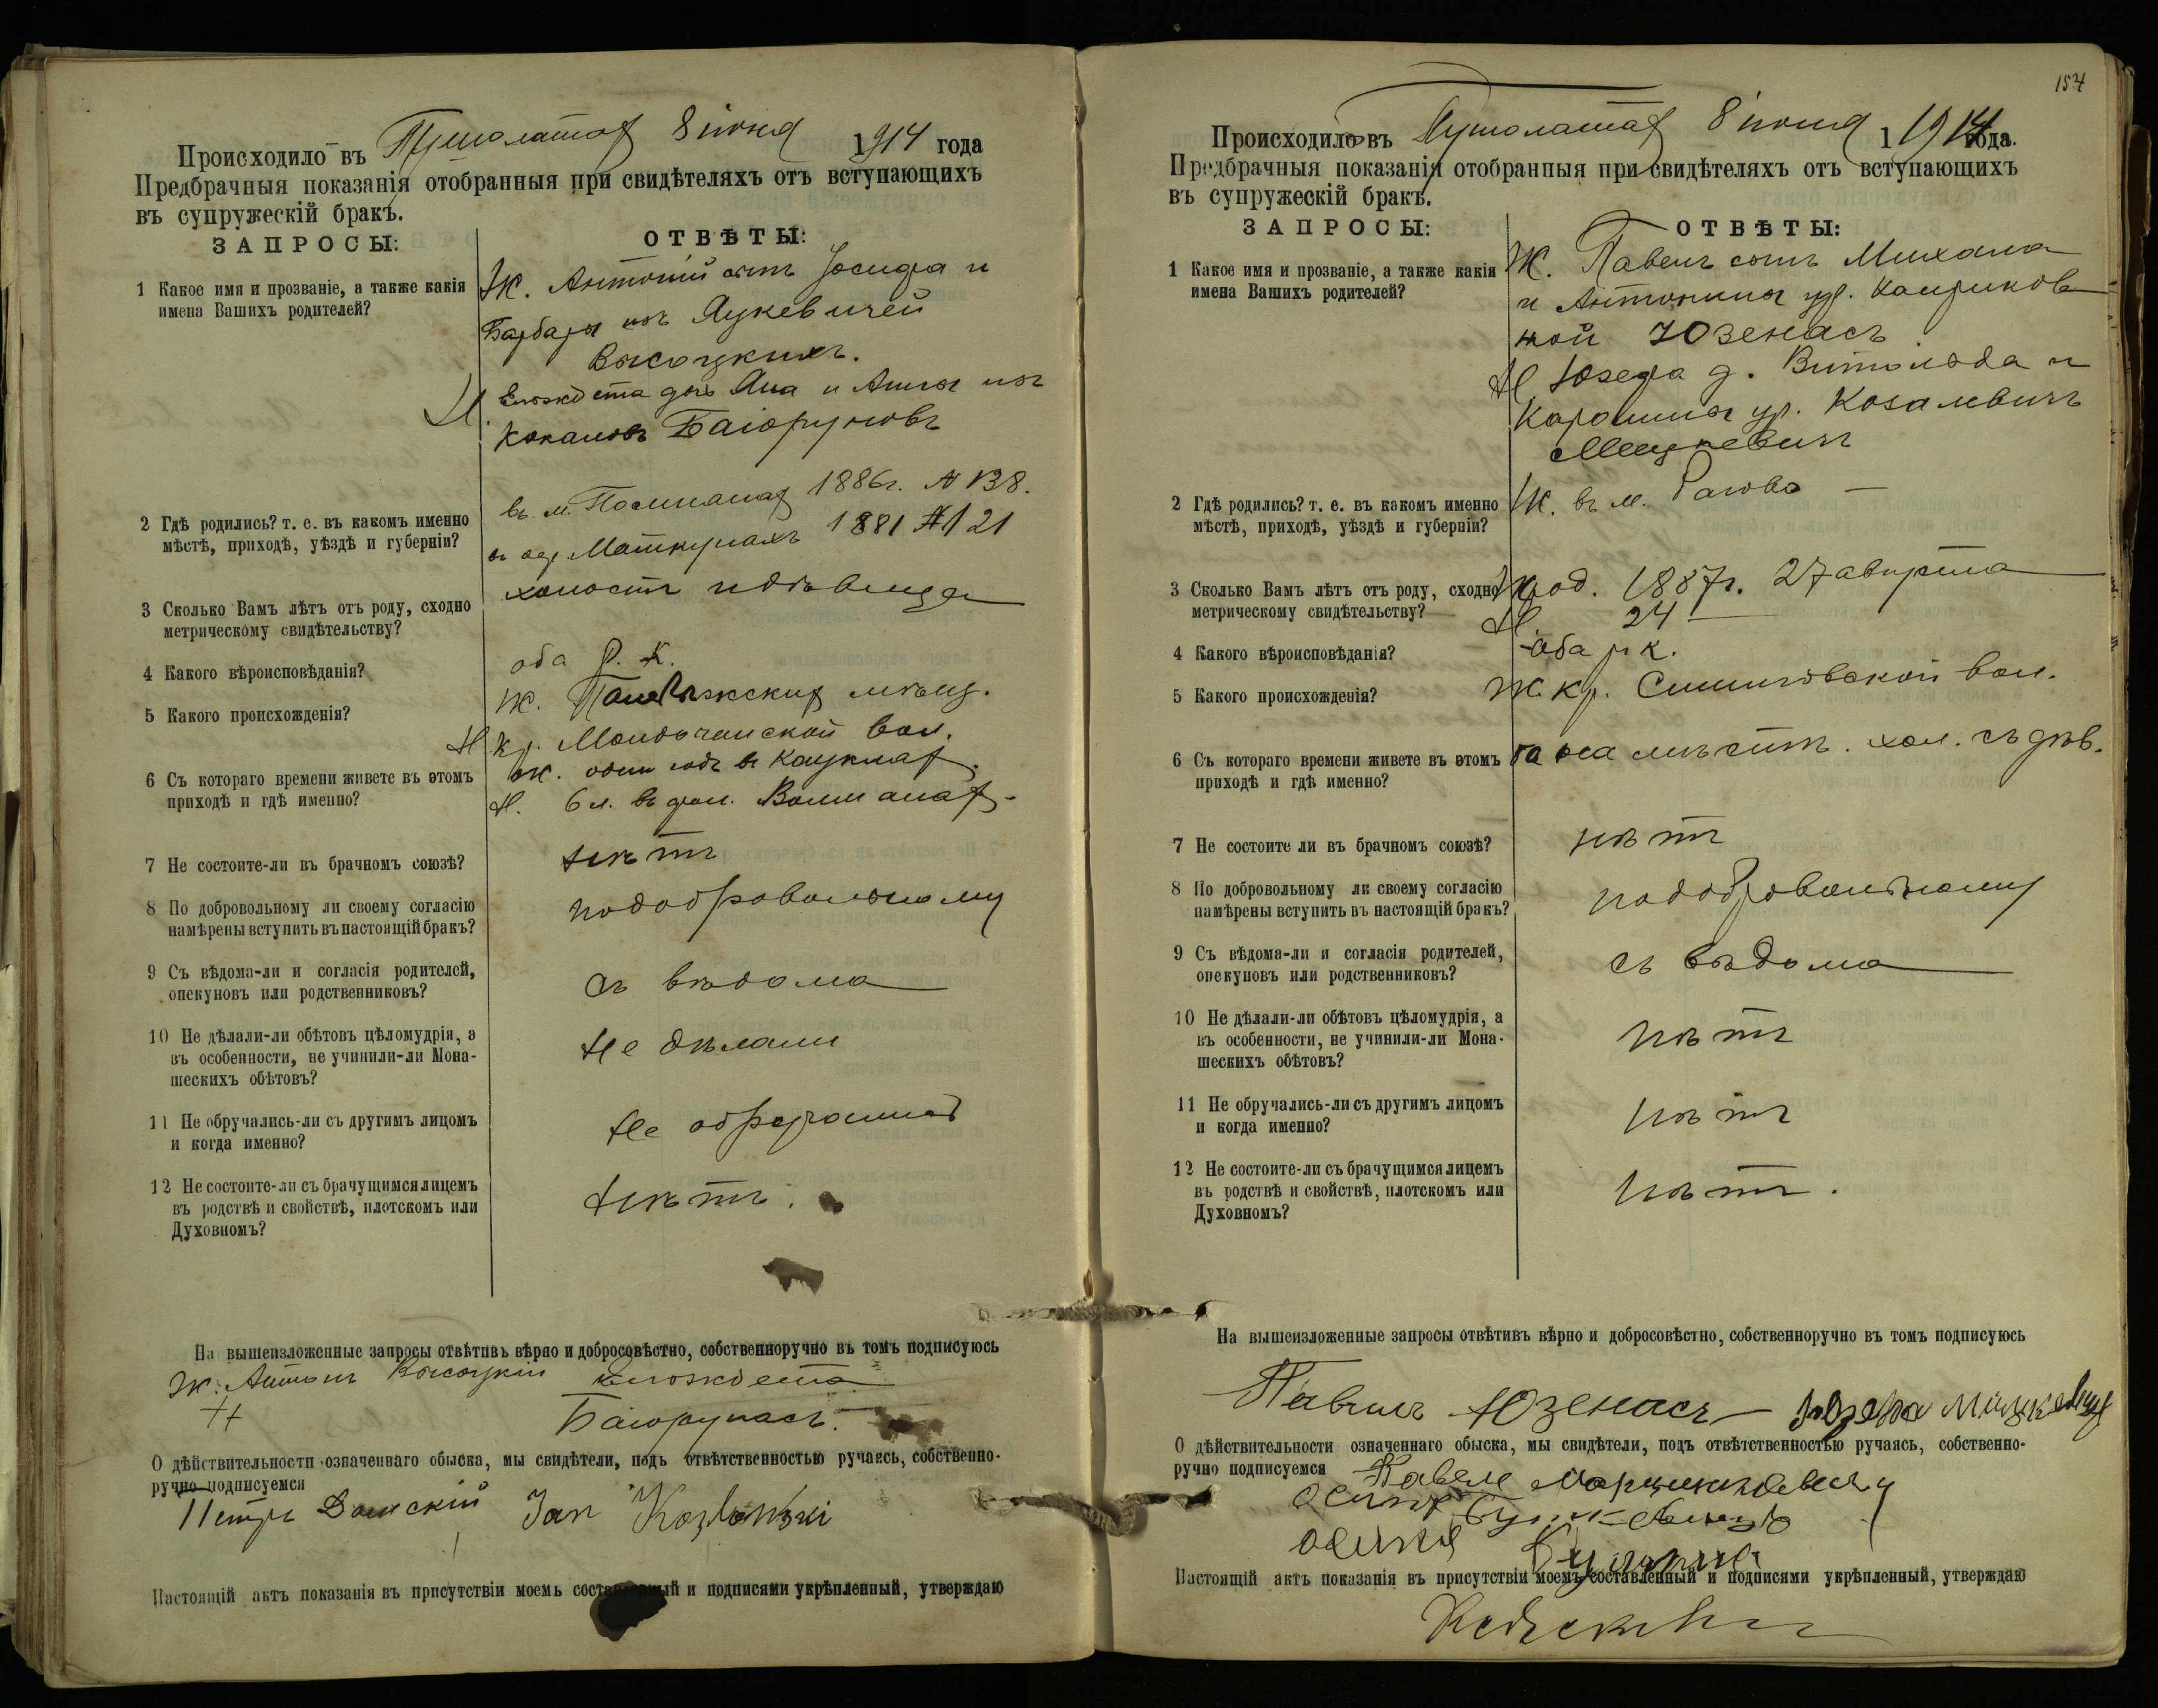 Происходило въ Пушолатах 8 іюня 1914 года
Предбрачныя показанія отобранныя при свидѣтеляхъ отъ вступающихъ
въ супружескій бракъ.
ЗАПРОСЫ:
ОТВѢТЫ:
1 Какое имя и прозваніе, а также какія
имена Вашихъ родителей?
Ж. Антоній сынъ Іосифа и
Барбары изъ Лукевичей
Высоцкихъ.
Н. Ельжбета дочь Яна и Анны изъ
Баіоруновъ
2 Гдѣ родились? т. е. въ какомъ именно
мѣстѣ, приходѣ, уѣздѣ и губерніи?
въ м. 1886г. № 138.
1881 № 121
3 Сколько Вамъ лѣтъ отъ роду, сходно
метрическому свидѣтельству?
холостъ и дѣвица
4 Какого вѣроисповѣданія?
оба р. к.
5 Какого происхожденія?
Ж. мѣщ.
Н. кр. вол.
6 Съ котораго времени живете въ этомъ
приходѣ и гдѣ именно?
Ж. одинъ годъ в
Н. 6 л. въ
7 Не состоите-ли въ брачномъ союзѣ?
нѣтъ
8 По добровольному ли своему согласію
намѣрены вступить въ настоящій бракъ?
по добровольному
9 Съ вѣдома-ли и согласія родителей,
опекуновъ или родственниковъ?
съ вѣдома
10 Не дѣлали-ли обѣтовъ цѣломудрія, а
въ особенности, не учинили-ли Мона-
шескихъ обѣтовъ?
не дѣлали
11 Не обручались-ли съ другимъ лицомъ
и когда именно?
не
12 Не состоите-ли съ брачущимся лицемъ
въ родствѣ и свойствѣ, плотскомъ или
Духовномъ?
нѣтъ.
На вышеизложенные запросы отвѣтивъ вѣрно и добросовѣстно, собственноручно въ томъ подписуюсь
Ж. Антонъ Высоцкій Ельжбета
Н Баіорунасъ.
О дѣйствительности означеннаго обыска, мы свидѣтели, подъ отвѣтственностью ручаясь, собственно-
ручно подписуемся
Петръ Jan Kozłowski
Настоящій актъ показанія въ присутствіи моемъ составленный и подписями укрѣпленный, утверждаю
154
Происходило въ Пушолатах 8 іюня 1914 года.
Предбрачныя показанія отобранныя при свидѣтеляхъ отъ вступающихъ
въ супружескій бракъ.
ЗАПРОСЫ:
ОТВѢТЫ:
1 Какое имя и прозваніе, а также какія
имена Вашихъ родителей?
Ж. Павелъ сынъ Михала
и Антонины ур.
ной Юзенасъ
Н Юзефа д. Витольда и
Каролины ур. Козалевичъ
Мицкевичъ
2 Гдѣ родились? т. е. въ какомъ именно
мѣстѣ, приходѣ, уѣздѣ и губерніи?
Ж. въ м. Рагово
3 Сколько Вамъ лѣтъ отъ роду, сходно
метрическому свидѣтельству?
Ж род. 1887г. 27 августа
Н. 24
4 Какого вѣроисповѣданія?
оба р к.
5 Какого происхожденія?
Ж. кр. вол.
6 Съ котораго времени живете въ этомъ
приходѣ и гдѣ именно?
на мѣстѣ. хол. съ дѣв.
7 Не состоите ли въ брачномъ союзѣ?
нѣтъ
8 По добровольному ли своему согласію
намѣрены вступить въ настоящій бракъ?
по добровольному
9 Съ вѣдома-ли и согласія родителей,
опекуновъ или родственниковъ?
съ вѣдома
10 Не дѣлали-ли обѣтовъ цѣломудрія, а
въ особенности, не учинили-ли Мона-
шескихъ обѣтовъ?
нѣтъ
11 Не обручались-ли съ другимъ лицомъ
и когда именно?
нѣтъ
12 Не состоите-ли съ брачущимся лицемъ
въ родствѣ и свойствѣ, плотскомъ или
Духовномъ?
нѣтъ.
На вышеизложенные запросы отвѣтивъ вѣрно и добросовѣстно, собственноручно въ томъ подписуюсь
Павелъ Юзенасъ Юзефа
О дѣйствительности означеннаго обыска, мы свидѣтели, подъ отвѣтственностью ручаясь, собственно-
ручно подписуемся
Настоящій актъ показанія въ присутствіи моемъ составленный и подписями укрѣпленный, утверждаю